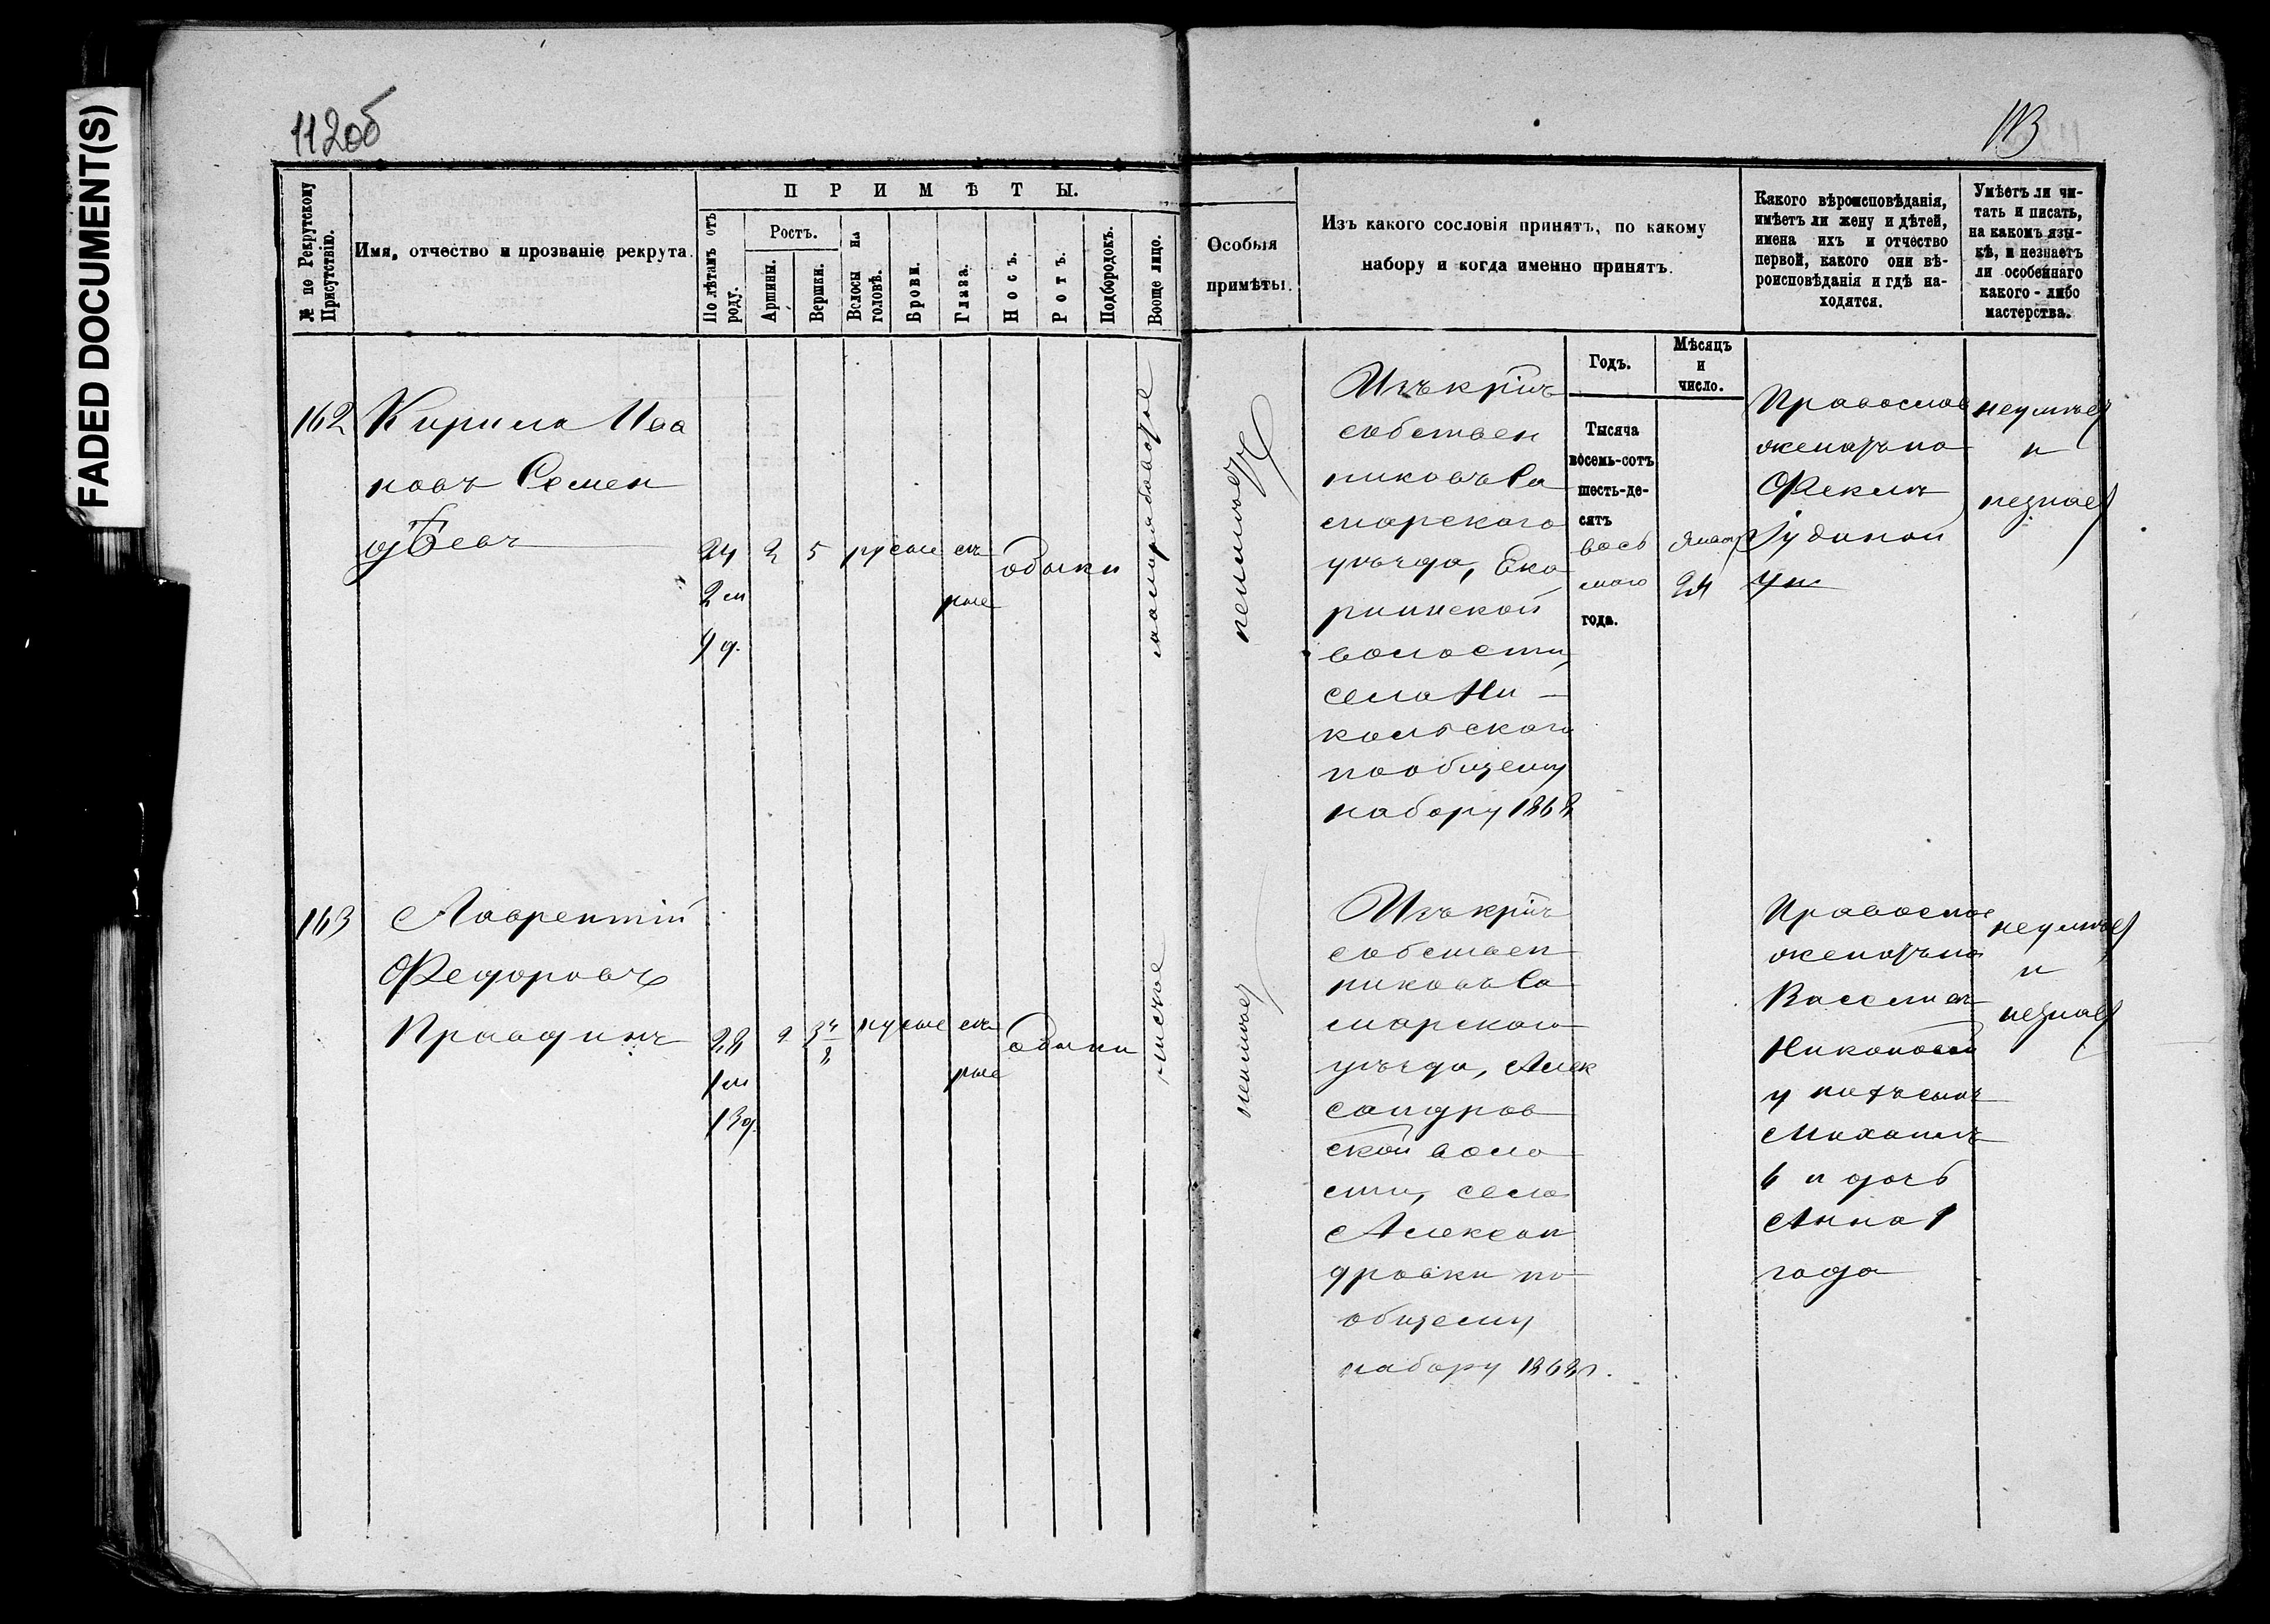 FADED DOCUMENT(S)
112об
113
№ по Рекрутскому Присутствію.
Имя, отчество и прозваніе рекрута.
ПРИМѢТЫ.
По лѣтамъ отъ роду.
Ростъ.
Аршины.
Вершки.
Волосы на головѣ.
Брови.
Глаза.
Носъ.
Ротъ.
Подбородокъ.
Вооще лицо.
Особыя
примѣты.
Изъ какого сословія принятъ, по какому
набору и когда именно принятъ.
Какого вѣроисповѣданія,
имѣетъ ли жену и дѣтей,
имена ихъ и отчество
первой, какого они вѣ-
роисповѣданія и гдѣ на-
ходятся.
Умѣетъ ли чи-
тать и писать,
на какомъ язы-
кѣ, и незнаетъ
ли особеннаго
какого-либо
мастерства.
Годъ.
Мѣсяцъ
и
число.
162
Кирила Ива
новъ Семен
дѣевъ
24
2 м
9 д.
2
5
русые
сѣ
рые
обыкн
малорябоватое
неимѣет
Изъ кр꙽нъ
собствен
никовъ Са
марскаго
уѣзда, Ека
рининской
волости,
села Ни-
кольскаго
по общему
набору 1868
Тысяча
восемь-сотъ
шесть-де-
сятъ
вось
маго
года.
Январ
24
Православ
женатъ на
Феклѣ
Іудиной
неумѣет
и
незнает
163
Лаврентій
Федоровъ
Правдинъ
28
1 м
13 д.
2
3 4/8
русые
сѣ
рые
обыкн
чистое
неимѣет
Изъ кр꙽нъ
собствен
никовъ Са
марскаго
уѣзда, Алек
сандров
ской воло
сти, села
Александ
дровки по
общему
набору 1868 г.
Православ
женатъ на
Васси
Никоновой
у нихъ сынъ
Михаилъ
6 и дочь
Анна 1
года
неумѣет
и
незнает